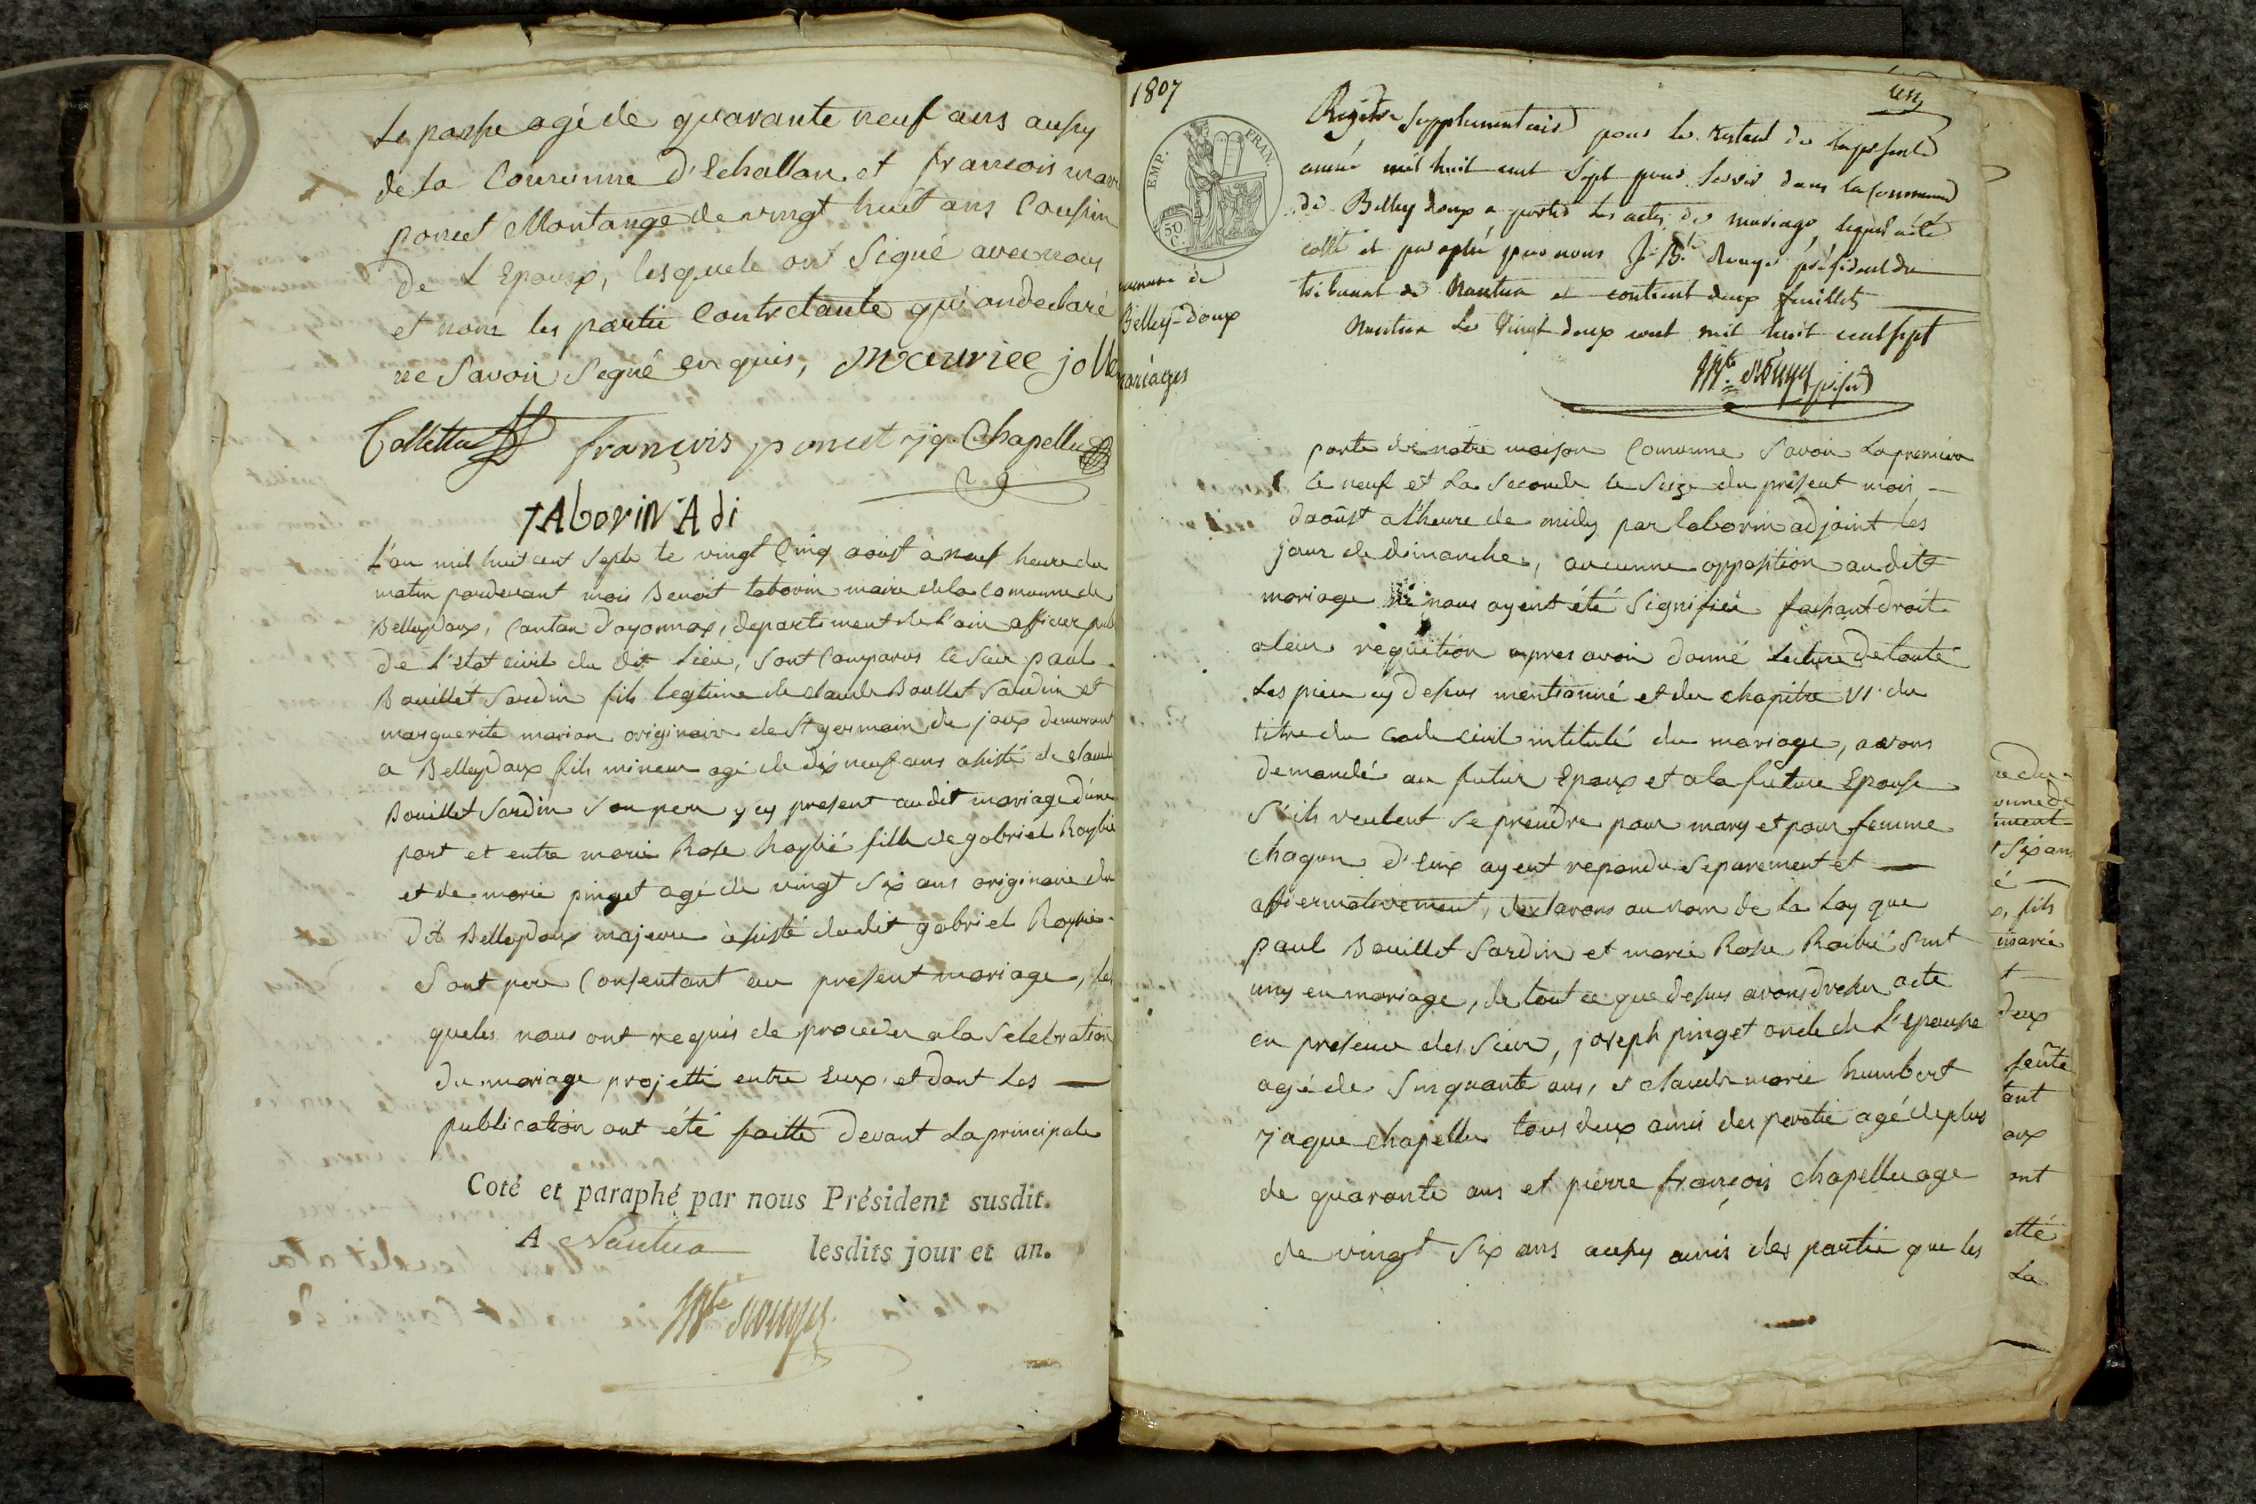 Lepouse agé de quarante neuf ans aussy
de la Commune d'Echallon et francois marie
poncet Montange de vingt huit ans Cousin
De L'Epoux, lesquels ont Signé avec nous
et non les partie Contractante qui ondeclaré
ne Savoir Segné enquis, Mauriee jolle
Collettaz françois poncet jq. Chapellu
TAborin Adi
L'an mil huit cent Septe le vingt Cinq aoust à neuf heure du
matin pardevant mois Benoit taborin maire de la Commune de
Belleydoux, Canton d'oyonnax, departement de L'ain officier pub
de L'état civil du dit Lieu, Sont Comparus le Sieur paul
Bouillet Sardin fils legitime de claude Boullet Sardin et
marguerite marian originaire de St germain de joux demurant
a Belleydoux fils mineur agé de dix neuf ans asisté de claude
Bouillet Sardin Son pere y cy present au dit mariage d'une
part et entre marie Rose Raybié fille de gabriel Raybié
et de marie pinget agé de vingt Six ans originaire du
dit Belleydoux majeure asisté dudit gabriel Raybié
Sont pere Consentant au present mariage, les
queles nous ont requis de proceder a la Selebration
du mariage projetté entre Eux et dont Les
publication ont été faitte devant La principale
Coté et paraphé par nous Président susdit.
A Nantua lesdits jour et an.
1807
EMP. FRAN.
50 C.
Belley-doux
mariages
Registre Supplementaire pour le restant de la presente
année mil huit cent Sept pour Servir dans la Commune
de Belley doux a porter les actes de mariage lequel a été
cotté et paraphé par nous J. Bte président du
tribunal de Nantua et contient deux feuillets
Nantua Le Vingt deux aout mil huit cent sept
porte de notre maison Comune Savoir La premiere
le neuf et La Seconde le Seize du présent mois
daoûst a l'heure de midy par taborin adjoint les
jour de dimanche, aucunne opposition audit
mariage ne nous ayent été Signifiée faisant droit
a leur requition apres avoir donné Lecture de touté
Les piece cy desus mentionné et du chapitre VI du
titre du code civil intitulé du mariage, avons
demandé au futur Epoux et a la future Epouse
S'ils veulent Se prendre pour mary et pour femme
chaqun d'Eux ayent repondu Separement et
affiermativement, declarons au nom de La Loy que
paul Bouillet Sardin et marie Rose Raibié Sont
uny en mariage, de tout ce que desus avons dresser acte
en présence des Sieur, joseph pinget oncle de L'Epouse
agé de Sinquante ans, claude marie humbert
jaque chapellu tous deux amis des partie agé deplus
de quarante ans et pierre françois chapellu age
de vingt Six ans aussy amis des partie que les
onne de
ement
Six ans
é
x, fils
marie
deux
ant
oux
ont
etté
La